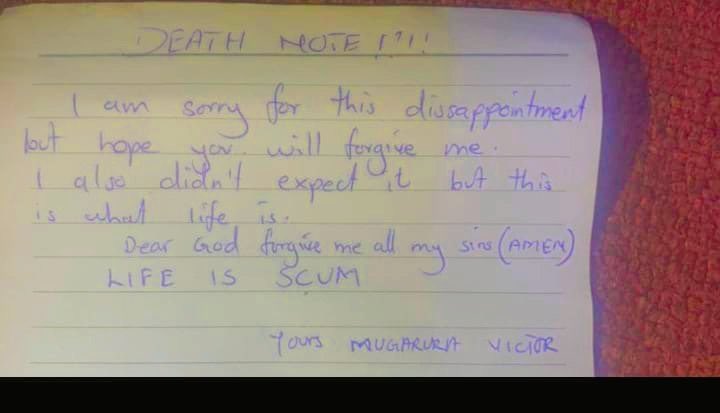 DEATH NOTE !!!!
I am sorry for this dissappointment
but hope you will forgive me.
I also didn't expect it but this
is what life is.
Dear God forgive me all my sins (AMEN)
LIFE IS SCUM
Yours MUGARURA VICTOR